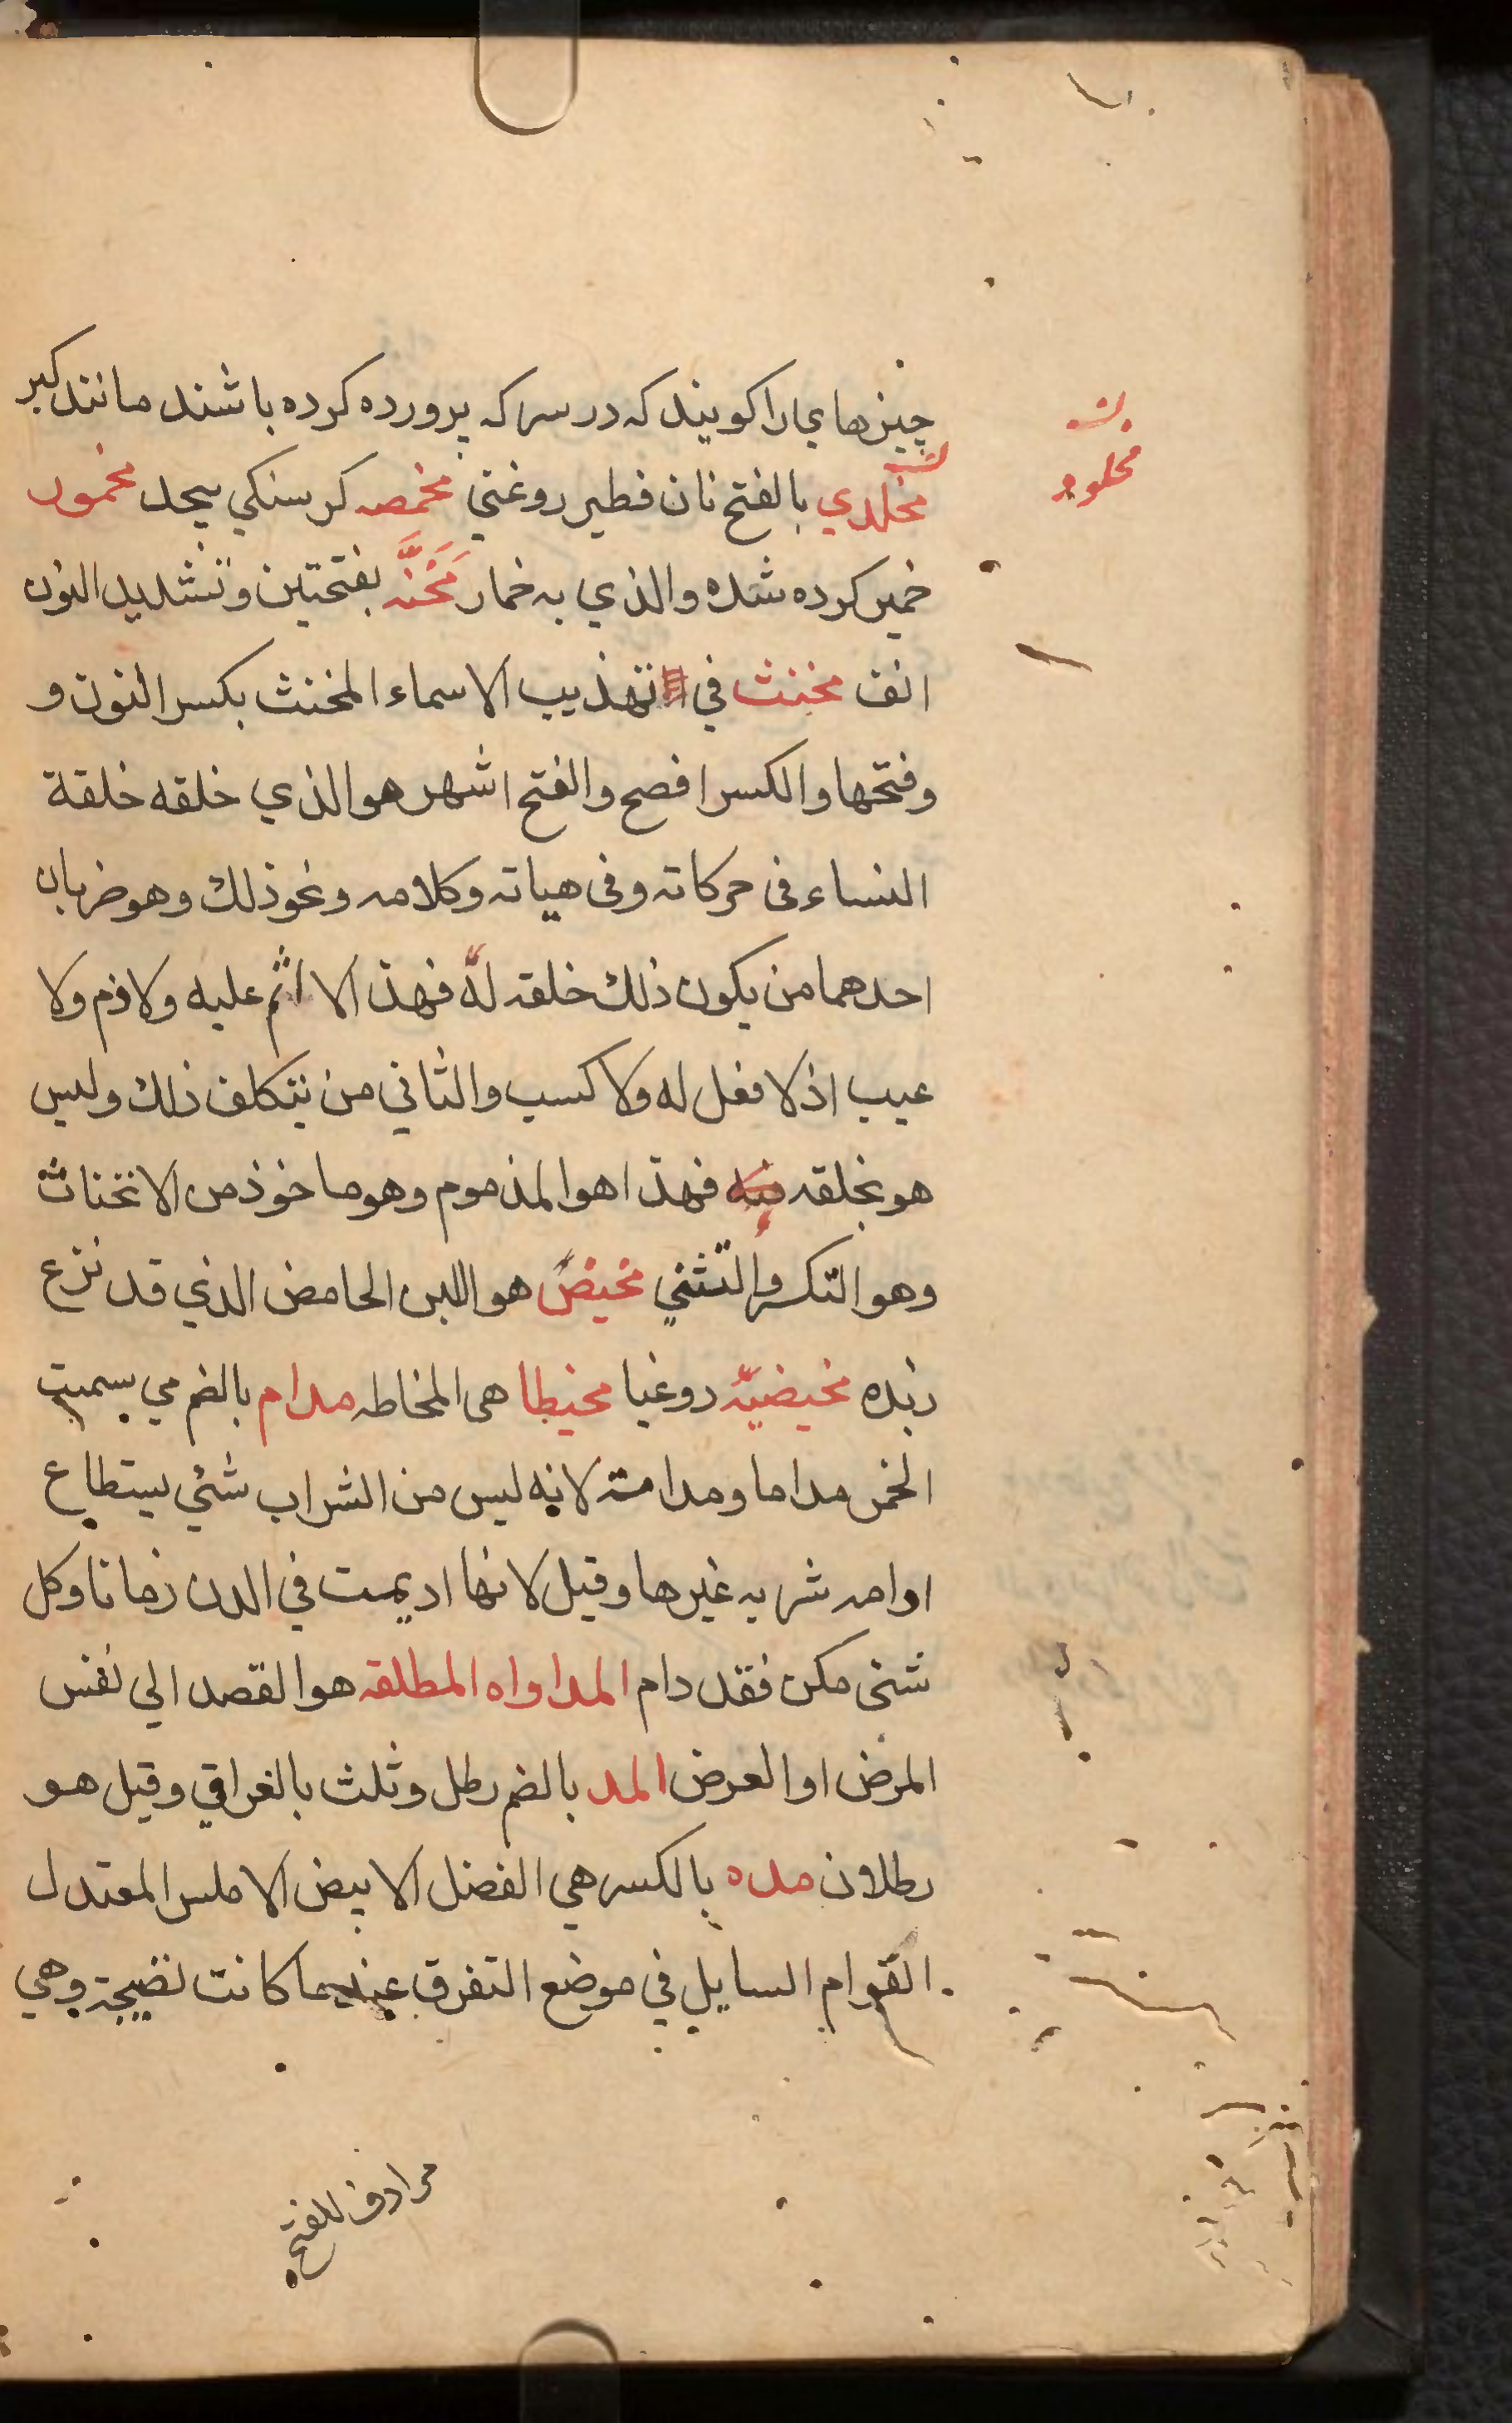 چیزهای را کویند که در سرکه پرورده کرده باشند مانند کبر
مخلدي بالفتح نان فطیر روغني مخمصه کرسنکي بیحد مخمور
خمیر کرده شده والذي به خمار مَخَنَّه بفتحتین وتشدید النون
انف مخنث في تهذیب الاسماء المخنث بکسر النون و
وفتحها والکسر افصح والفتح اشهر هو الذي خلقه خلقة
النساء في حرکاته وفي هیاته وکلامه ونحو ذلك وهو ضربان
احدهما من یکون ذلك خلقه له فهذا لا اثم علیه ولا ذم ولا
عیب اذ لا فعل له ولا کسب والثاني من یتکلف ذلك ولیس
هو بخلقه فیه فهذا هو المذموم وهو ماخوذ من الانخناث
وهو التکسر والتثني مخیض هو اللبن الحامض الذي قد نزع
زبده مخیضیّه دوغبا مخیطا هی المخاطه مدام بالضم می سمیت
الخمر مداما ومدامة لانه لیس من الشراب شئي یستطاع
اوامه شربه غیرها وقیل لانها ادیمت في الدن زمانا وکل
شئي مکن فقد دام المداواه المطلقه هو القصد الي نفس
المرض او العرض المد بالضم رطل وثلث بالعراقي وقیل هو
رطلان مده بالکسر هي الفضل الابیض الاملس المعتدل
القوام السایل في موضع التفرق عندما کانت نضیجة وهي
مرادف للقیح
مخلود